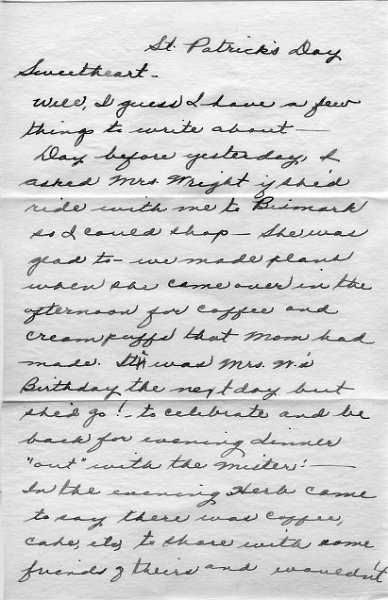 St. Patrick's Day
Sweetheart -
Well, I guess I have a few
things to write about —
Day before yesterday, I
asked Mrs. Wright if she'd
ride with me to Bismark
so I could shop - She was
glad to - we made plans
when she came over in the
afternoon for coffee and
creampuffs that Mom had
made. It was Mrs. W.'s
Birthday the next day but
she'd go! - to celebrate and be
back for evening dinner
"out" with the Mister! —
In the evening Herb came
to say there was coffee,
cake, etc, to share with some
friends of theirs and wouldn't